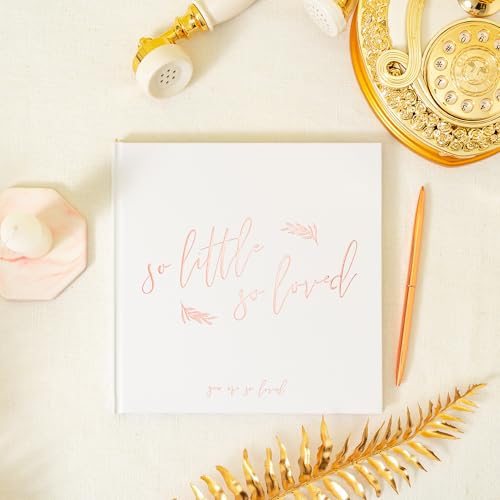 so little
so loved
you are so loved